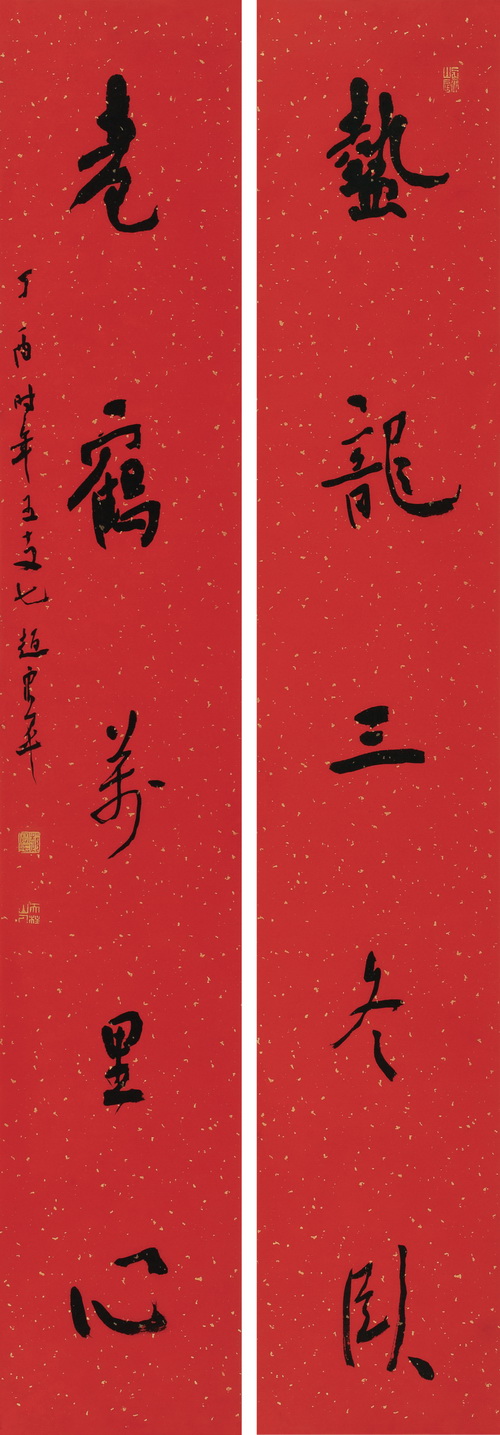 蟄龍三冬臥
老鶴萬里心
丁酉时年五十又七趙